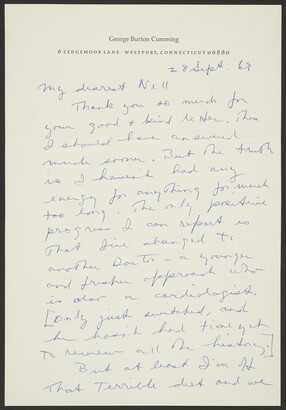 George Burton Cumming
6 LEDGEMOOR LANE · WESTPORT, CONNECTICUT 06880
28 Sept. 69
My dearest Nell
Thank you so much for
your good & kind letter. This
I should have answered
much sooner. But the truth
is I haven't had any
energy for anything for much
too long. The only positive
progress I can report is
that I've changed to
another Doctor – a younger
and fresher approach who
is also a cardiologist.
[Only just switched, and
he hasn't had time yet
to review all the history.]
But at least I'm off
that terrible diet and we